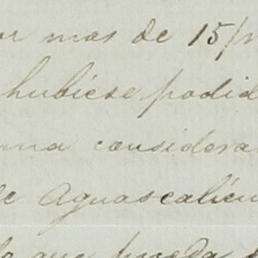 mas de 15/m
hubiése podid
una considera
de Aguascalien
lo que pueda